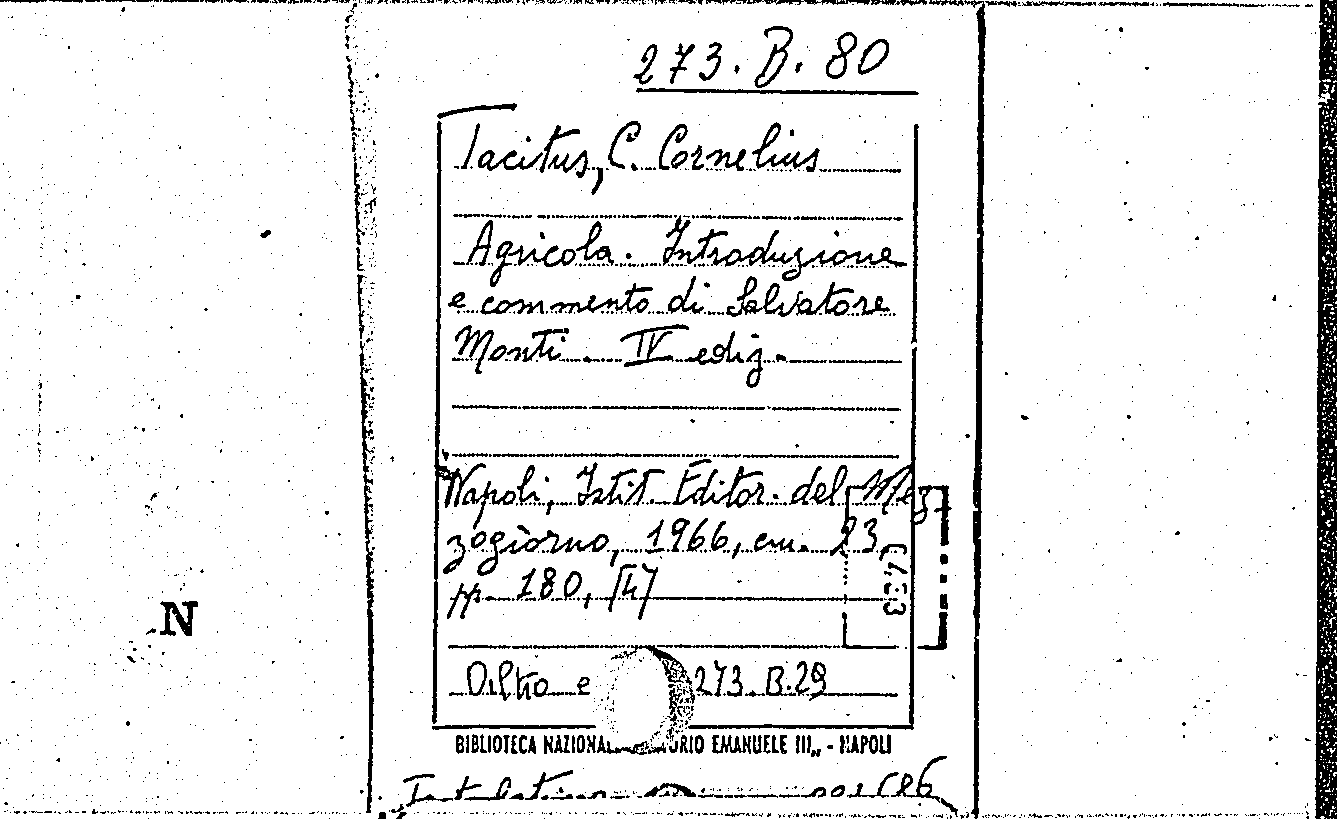 273.B.80
Tacitus, C. Cornelius
Agricola. Introduzione
e commento di Salvatore
Monti. IV ediz.
Napoli, Istit. Editor. del Mez
zogiorno, 1966, cm. 23,
pp. 180, [4]
Altro e 273.B.29
BIBLIOTECA NAZIONAL RIO EMANUELE III„ - NAPOLI
N